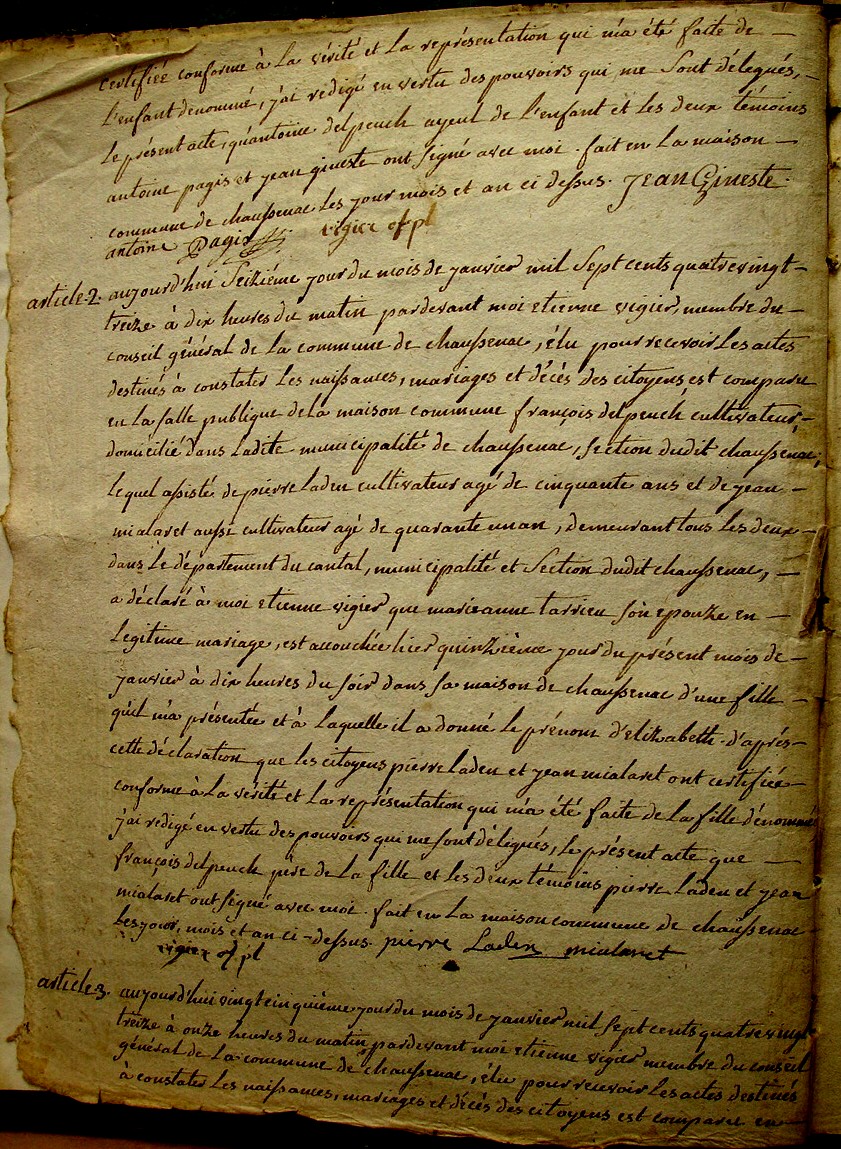 certifiée conforme à la vérité et la représentation qui m'a été faite de —
l'enfant denommé, j'ai redigé en vertu des pouvoirs qui me sont délegués, —
le présent acte, qu'antoine delpeuch ayeul de l'enfant et les deux témoins
antoine pagis et jean gineste ont signé avec moi. fait en la maison —
commune de chaussenac les jour mois et an ci dessus. JEAN Gineste.
antoine Pagis vigier of. pl
article 2. aujourd'hui seizième jour du mois de janvier mil sept cents quatrevingt-
treize à dix heures du matin pardevant moi etienne vigier, membre du —
conseil général de la commune de chaussenac, élu pour recevoir les actes
destinés à constater les naissances, mariages et décès des citoyens, est comparu
en la salle publique de la maison commune françois delpeuch cultivateur, -
domicilié dans ladite municipalité de chaussenac, section dudit chaussenac,
lequel assisté de pierre laden cultivateur agé de cinquante ans et de jean —
mialaret aussi cultivateur agé de quarante un an, demeurant tous les deux —
dans le département du cantal, municipalité et section dudit chaussenac, —
a déclaré à moi etienne vigier que marieanne tarrieu son epouze en —
legitime mariage, est accouchée hier quinzième jour du présent mois de —
janvier à dix heures du soir dans sa maison de chaussenac d'une fille —
qu'il m'a présentée et à laquelle il a donné le prénom d'elizabeth. d'après —
cette déclaration que les citoyens pierre laden et jean mialaret ont certifiée —
conforme à la vérité et la représentation qui m'a été faite de la fille dénommée
j'ai redigé en vertu des pouvoirs qui me sont délégués, le présent acte que —
françois delpeuch père de la fille et les deux témoins pierre laden et jean
mialaret ont signé avec moi. fait en la maison commune de chaussenac
les jour, mois et an ci-dessus. pierre Laden mialaret
vigier of. pl
article 3. aujourd'hui vingtcinquième jour du mois de janvier mil sept cents quatrevingt
treize à onze heures du matin pardevant moi etienne vigier membre du conseil
général de la commune de chaussenac, élu pour recevoir les actes destinés
à constater les naissances, mariages et décès des citoyens est comparu en —